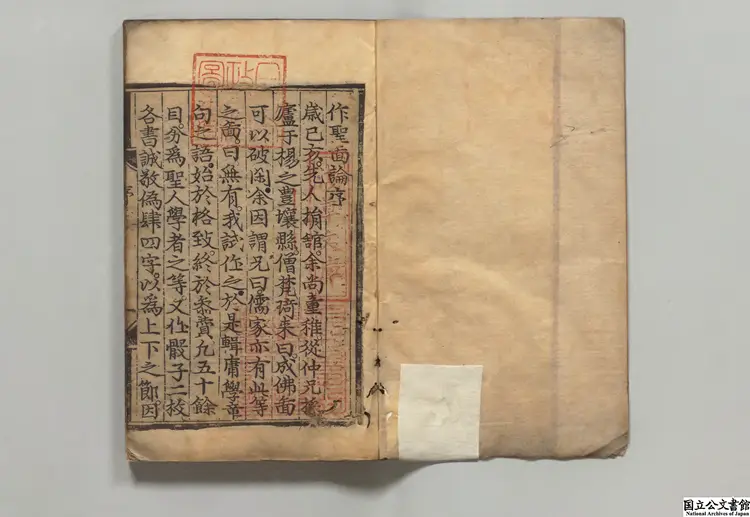 作聖面論序
歲己亥先人捐舘余尚童稚從仲兄
廬于楊之豊壤縣僧梵琦来曰成佛面
可以破閑余因謂兄曰儒家亦有此等
之啚曰無有我試作之於是輯庸學章
句之語始於格致終於叅賛凡五十餘
目分爲聖人學者之等又作骰子二枚
各書誠敬偽肆四字以爲上下之節因
国立公文書館
National Archives of Japan